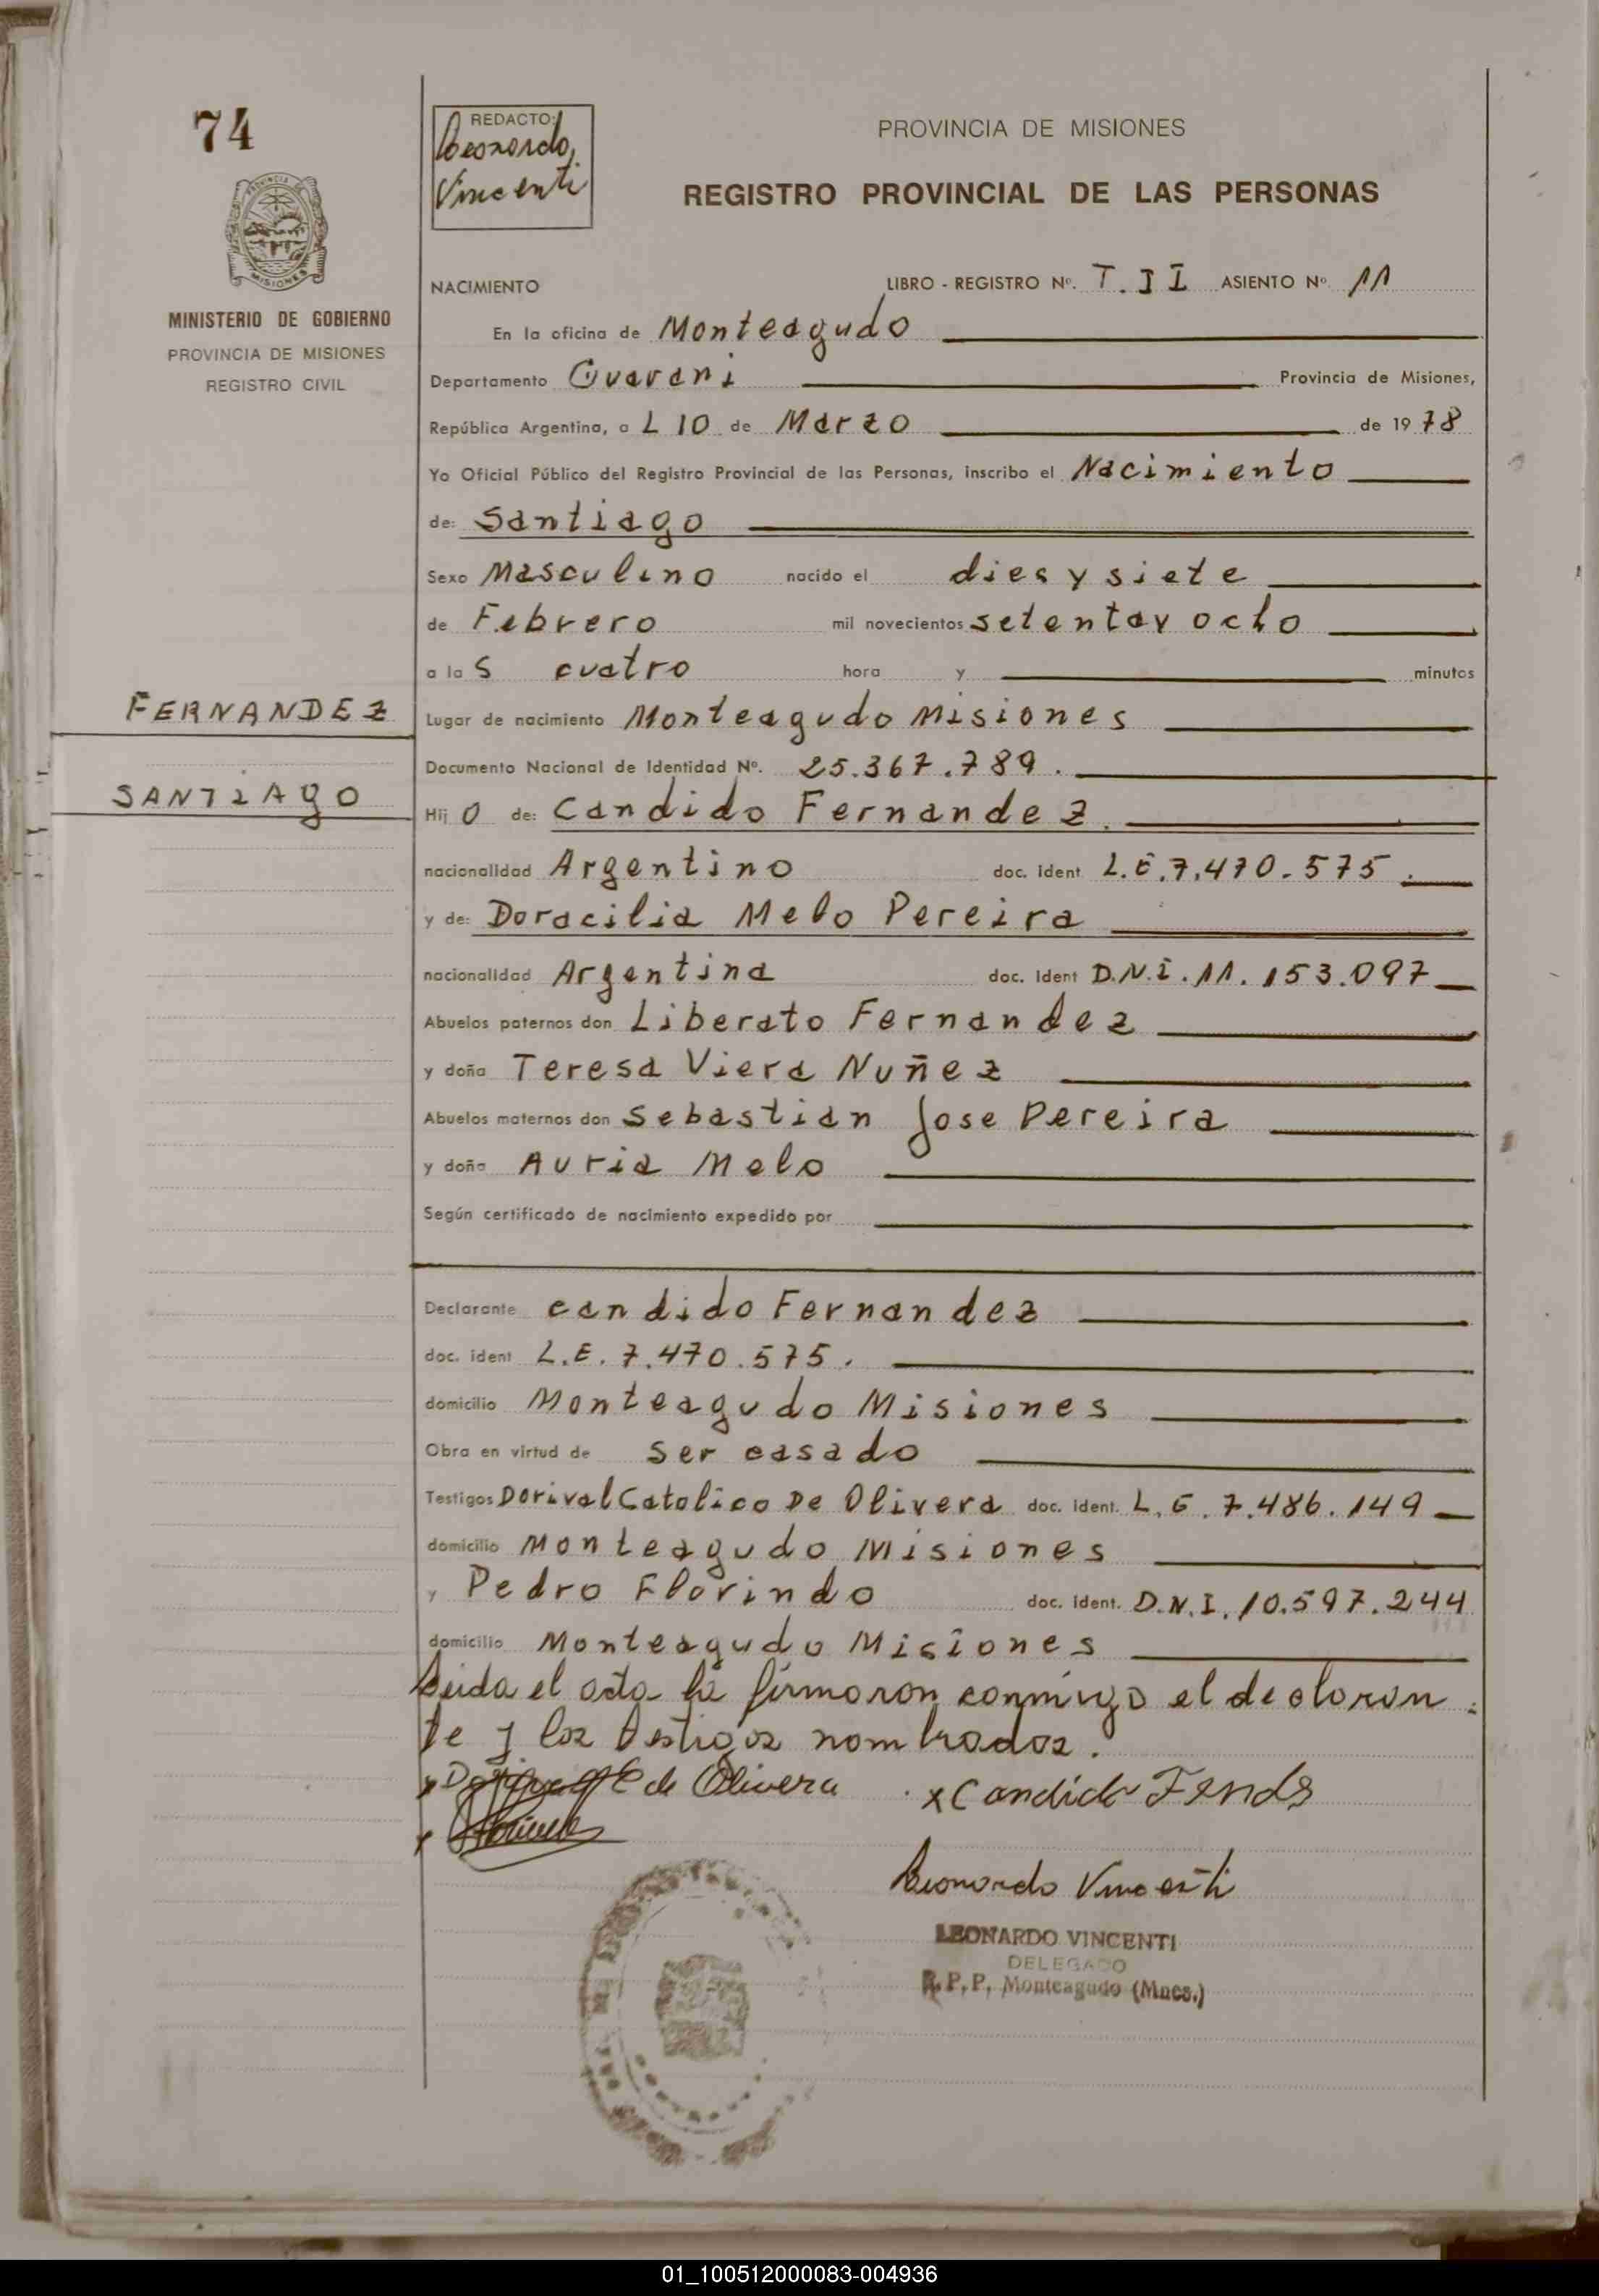 74
MISIONES
MINISTERIO DE GOBIERNO
PROVINCIA DE MISIONES
REGISTRO CIVIL
FERNANDEZ
SANTIAGO
REDACTO:
Leonardo
Vincenti
PROVINCIA DE MISIONES
REGISTRO PROVINCIAL DE LAS PERSONAS
NACIMIENTO LIBRO - REGISTRO Nº. T. II ASIENTO Nº 11
En la oficina de Monteagudo
Departamento Guarani Provincia de Misiones,
República Argentina, a L 10 de Marzo de 19 78
Yo Oficial Público del Registro Provincial de las Personas, inscribo el Nacimiento
de: Santiago
Sexo Masculino nacido el dies y siete
de Febrero mil novecientos setentay ocho
a la S cuatro hora y minutos
Lugar de nacimiento Monteagudo Misiones
Documento Nacional de Identidad Nº. 25.367.789.
Hij O de: Candido Fernandez.
nacionalidad Argentino doc. ident L.E.7.470.575.
y de: Doracilia Melo Pereira
nacionalidad Argentina doc. ident D.N.I. 11.153.097
Abuelos paternos don Liberato Fernandez
y doña Teresa Viera Nuñez
Abuelos maternos don Sebastian Jose Pereira
y doña Auria Melo
Según certificado de nacimiento expedido por
Declarante candido Fernandez
doc. ident L.E. 7.470.575.
domicilio Monteagudo Misiones
Obra en virtud de ser casado
Testigos Dorival Catolico De Olivera doc. ident. L.E. 7.486.149
domicilio Monteagudo Misiones
y Pedro Florindo doc. ident. D.N.I. 10.597.244
domicilio Monteagudo Misiones
Leida el acta la firmaron conmigo el declaran
te y los testigos nombrados.
C de Olivera x Candido Fends
Leonardo Vincenti
LEONARDO VINCENTI
DELEGADO
R.P.P. Monteagudo (Mnes.)
01_100512000083-004936